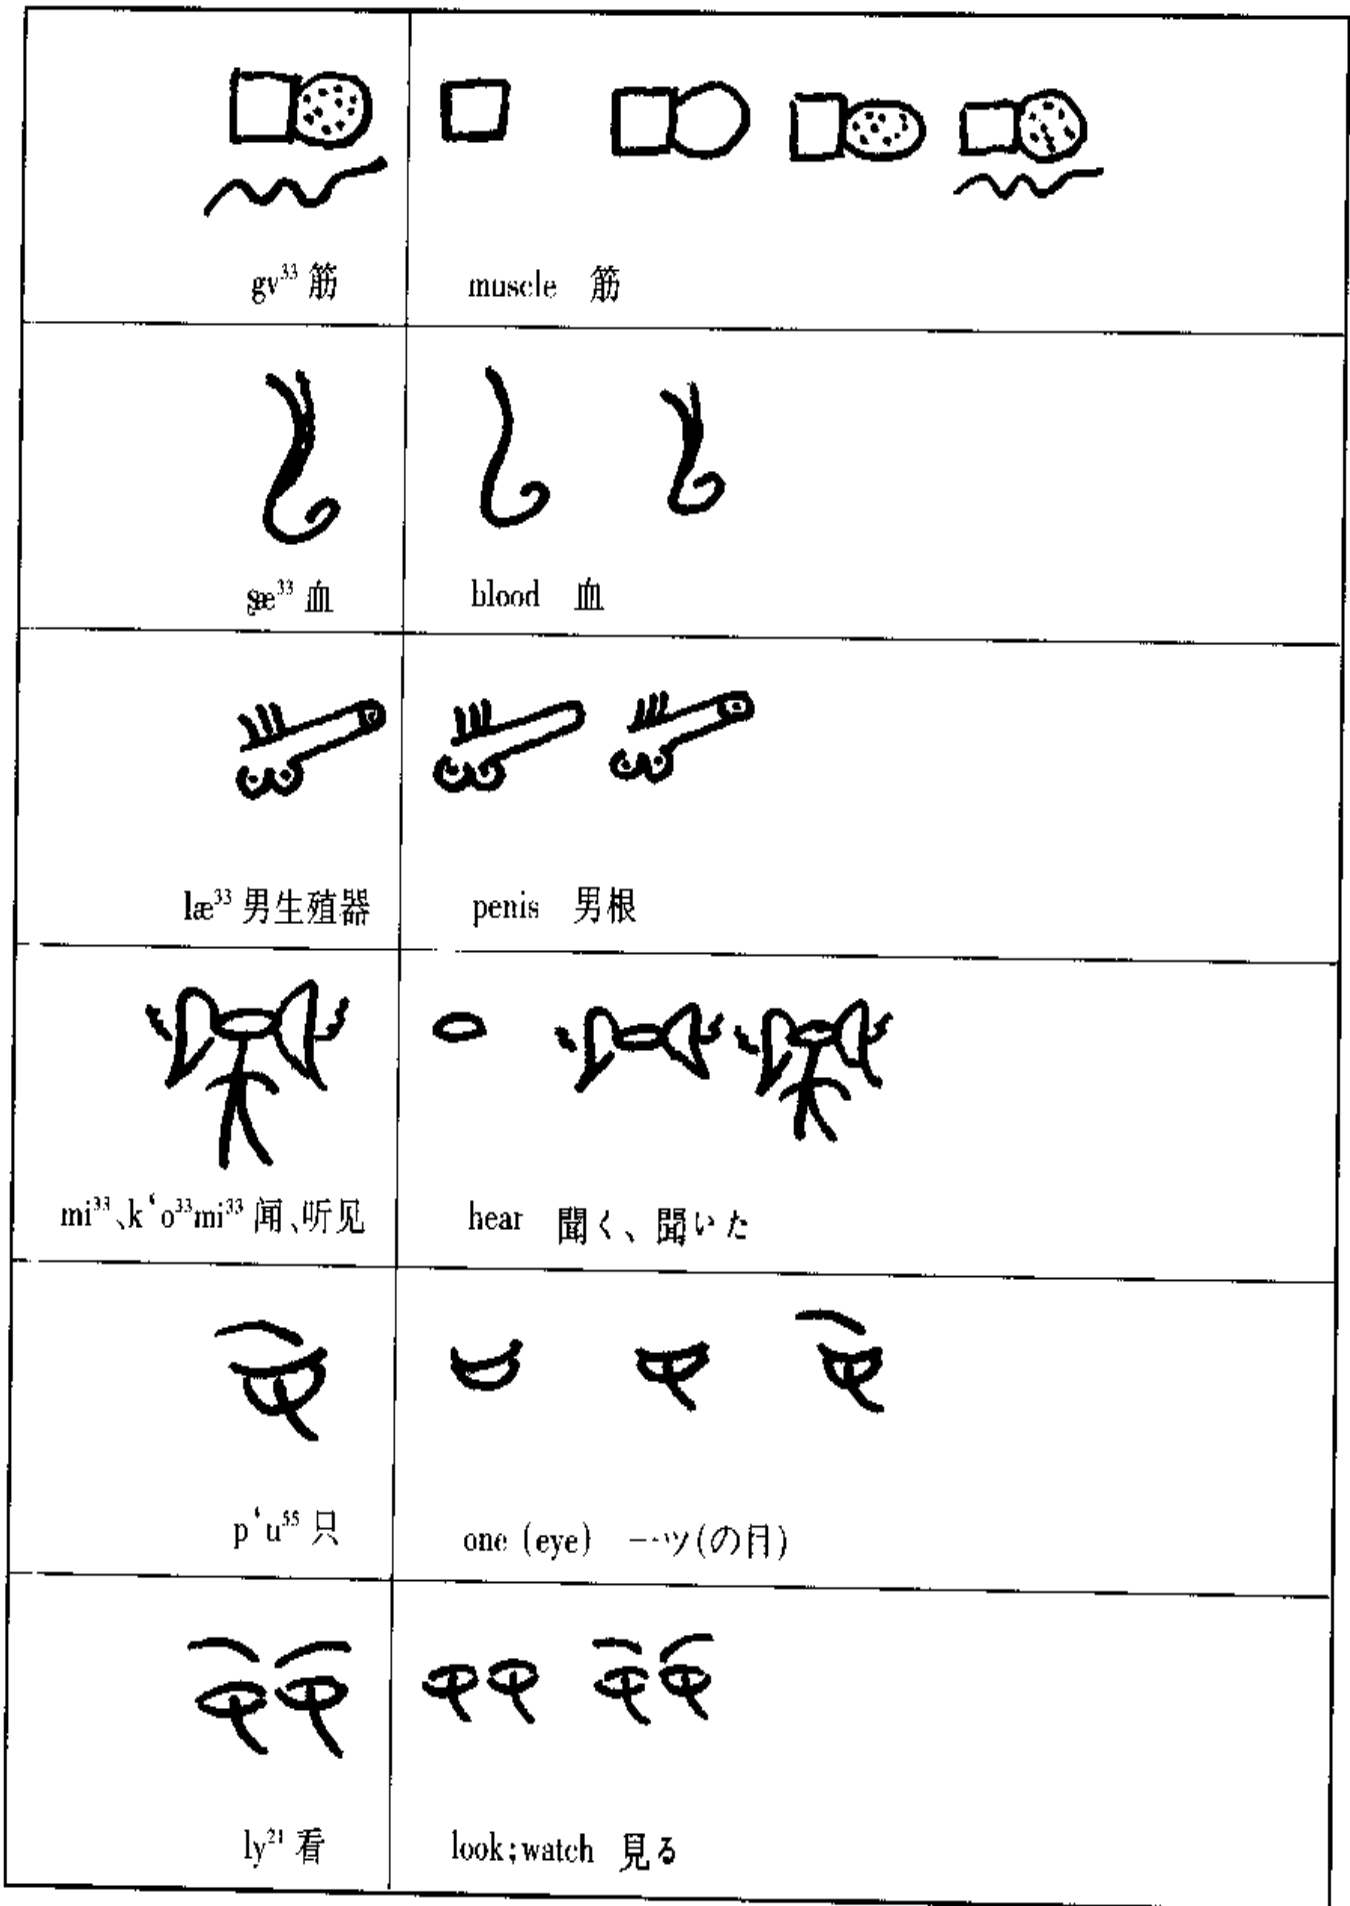 gv³³ 筋
muscle 筋
ʂæ³³ 血
blood 血
læ³³ 男生殖器
penis 男根
mi³³、k‘o³³mi³³ 闻、听见
hear 聞く、聞いた
p‘u⁵⁵ 只
one (eye) 一ツ(の目)
ly²¹ 看
look;watch 見る